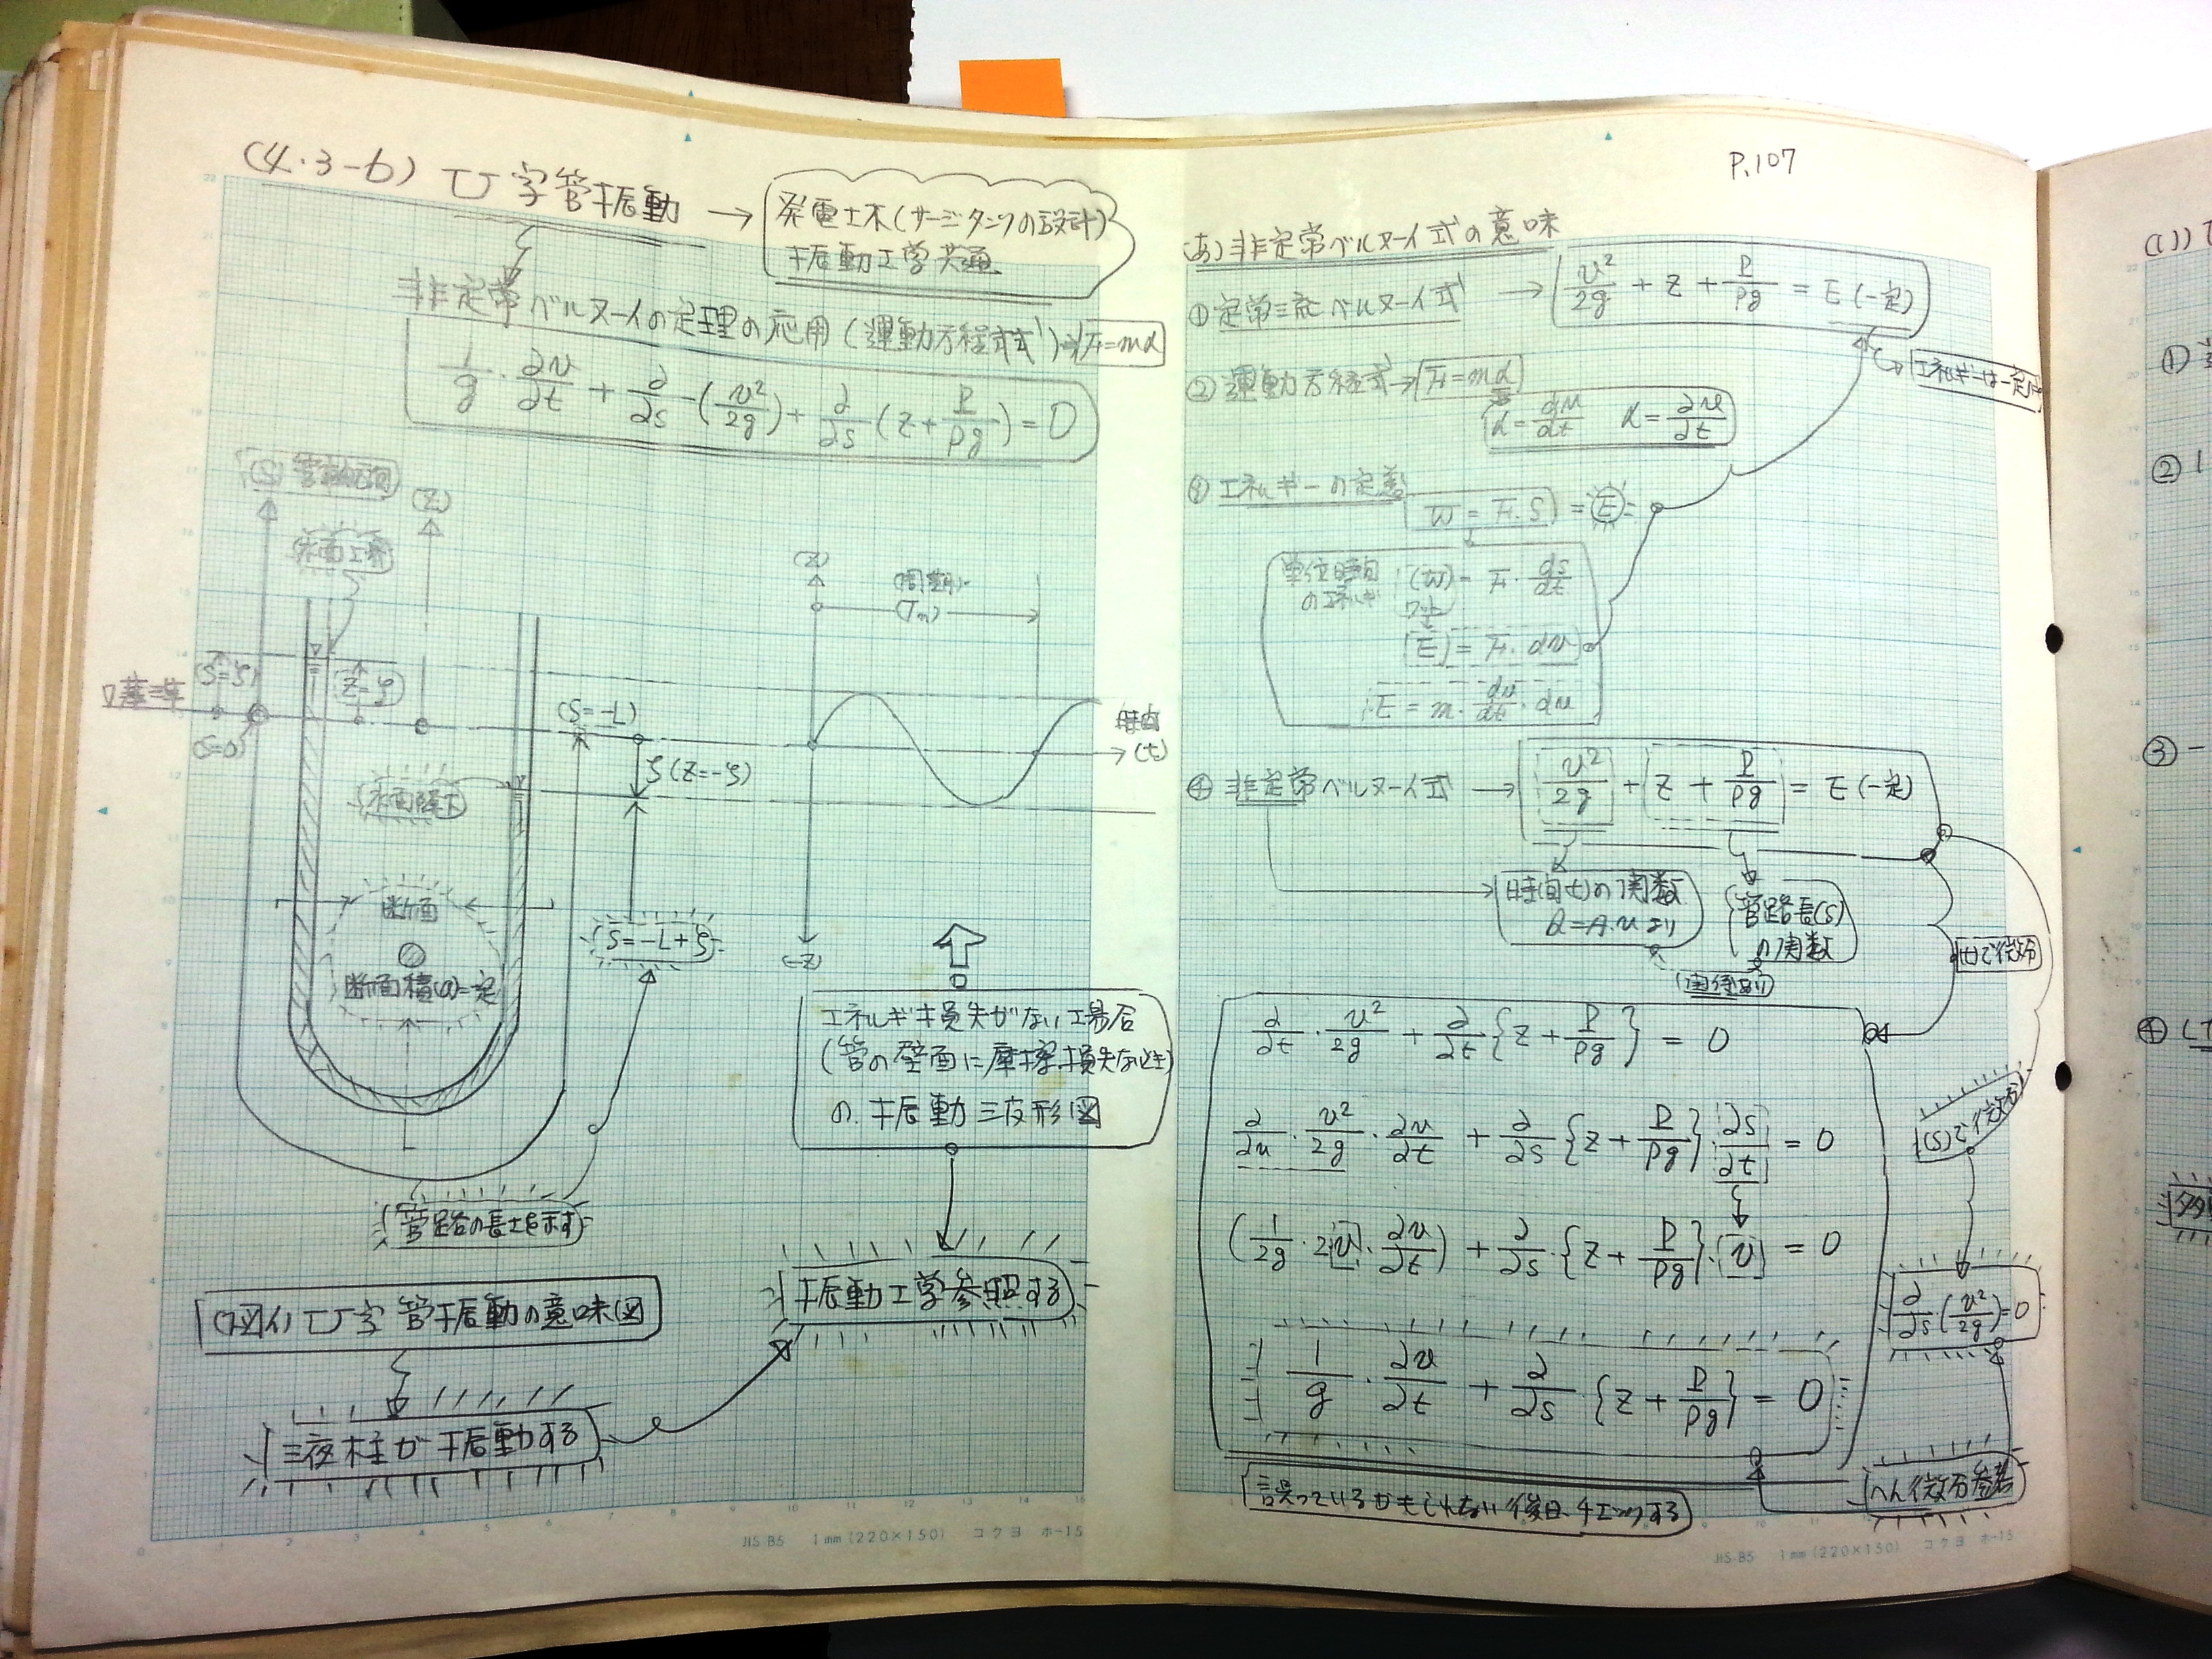 (4・3-6) U字管振動
→ 発電土木(サージタンクの設計)
振動工学共通
非定常ベルヌーイの定理の応用(運動方程式)→F=mα
1/g・∂v/∂t + ∂/∂s-(v²/2g) + ∂/∂s(z+P/ρg) = 0
(S) 管軸方向
(Z)
水面上昇
(S=ζ)
(Z=ζ)
▽基準
(S=0)
(S=-L)
ζ(Z=-ζ)
水面降下
断面
断面積(a)=一定
S=-L+ζ
L
管路の長さを示す
(Z)
(周期)
(Tm)
時間
(t)
(-Z)
エネルギ損失がない場合
(管の壁面に摩擦損失なし)
の振動波形図
(図イ) U字管振動の意味図
振動工学参照する
液柱が振動する
P.107
(あ) 非定常ベルヌーイ式の意味
① 定常流ベルヌーイ式 → v²/2g + z + P/ρg = E(一定)
エネルギーは一定
② 運動方程式→F=mα
α=dv/dt α=∂v/∂t
エネルギーの定義
W=F.S = E
単位時間のエネルギ
(W)= F・ds/dt
ワット
E = F・dv
E = m・dv/dt・dv
④ 非定常ベルヌーイ式 → v²/2g + z + P/ρg = E(一定)
時間tの関数
Q=A.vより
管路長(S)の関数
(関係あり)
(t)で微分
∂/∂t・v²/2g + ∂/∂t{z+P/ρg} = 0
∂/∂v・v²/2g・∂v/∂t + ∂/∂s{z+P/ρg}・∂s/∂t = 0
(S)で微分
(1/2g・2v・∂v/∂t) + ∂/∂s・{z+P/ρg}・v = 0
∂/∂s(v²/2g)=0
1/g・∂v/∂t + ∂/∂s・{z+P/ρg} = 0
へん微分参考
誤っているかもしれない後日、チェックする
JIS B5 1mm(220×150) コクヨ ホ-15
JIS B5 1mm(220×150) コクヨ ホ-15
(1)
①
② 1
③ 一
④